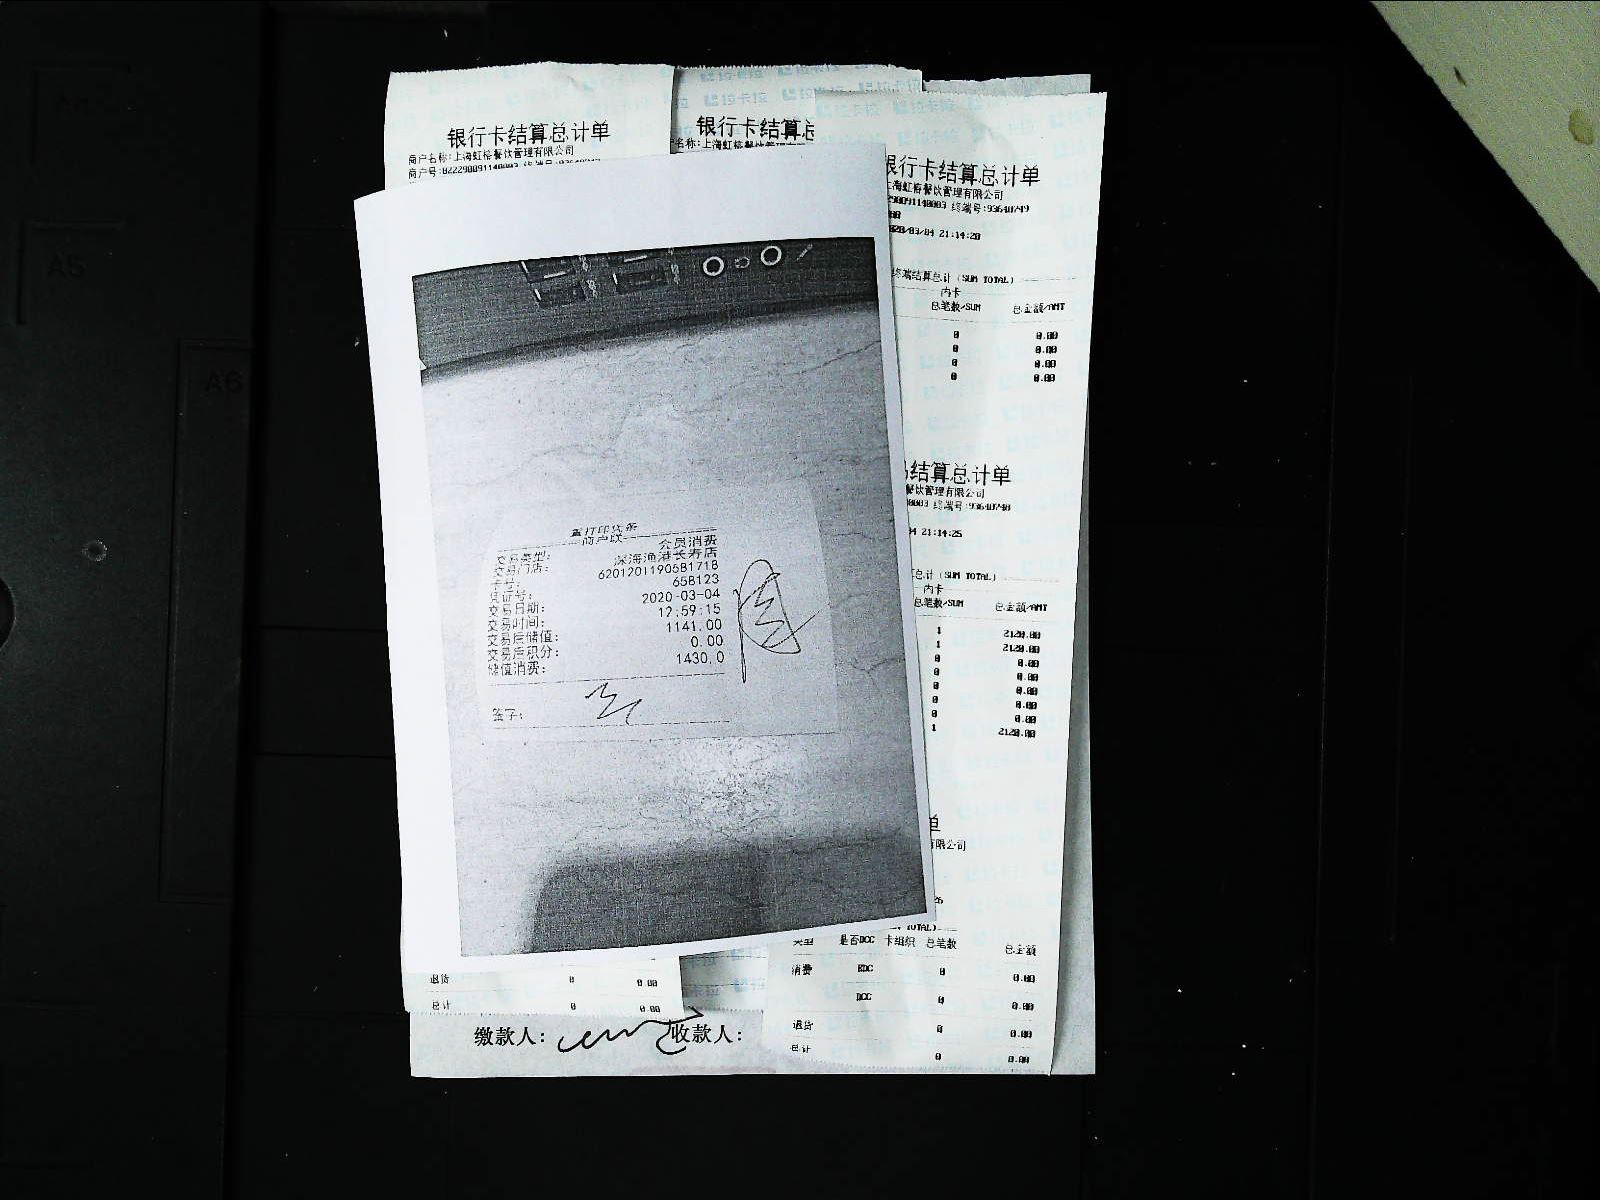 银行卡结算总计单
商户名称:上海虹榕餐饮管理有限公司
商户号:822290091140003 终端号:93640749
银行卡结算总
上海虹榕餐饮管理
银行卡结算总计单
上海虹榕餐饮管理有限公司
290091140003 终端号:93640749
2020/03/04 21:14:20
终端结算总计(SUM TOTAL)
内卡
总笔数/SUM 总金额/AMT
0 0.00
0 0.00
0 0.00
0 0.00
结算总计单
餐饮管理有限公司
0003 终端号:93640740
04 21:14:25
总计(SUM TOTAL)
内卡
总笔数/SUM 总金额/AMT
1 2120.00
1 2120.00
0 0.00
0 0.00
0 0.00
0 0.00
0 0.00
1 2120.00
单
有限公司
26
TOTAL)
类型 是否DCC 卡组织 总笔数 总金额
消费 EDC 0 0.00
DCC 0 0.00
退货 0 0.00
总计 0 0.00
重打印凭条
商户联
交易类型: 会员消费
交易门店: 深海渔港长寿店
卡号: 6201201190581718
凭证号: 658123
交易日期: 2020-03-04
交易时间: 12:59:15
交易后储值: 1141.00
交易后积分: 0.00
储值消费: 1430.0
签字:
退货 0 0.00
总计 0 0.00
缴款人: 收款人:
A5
A6